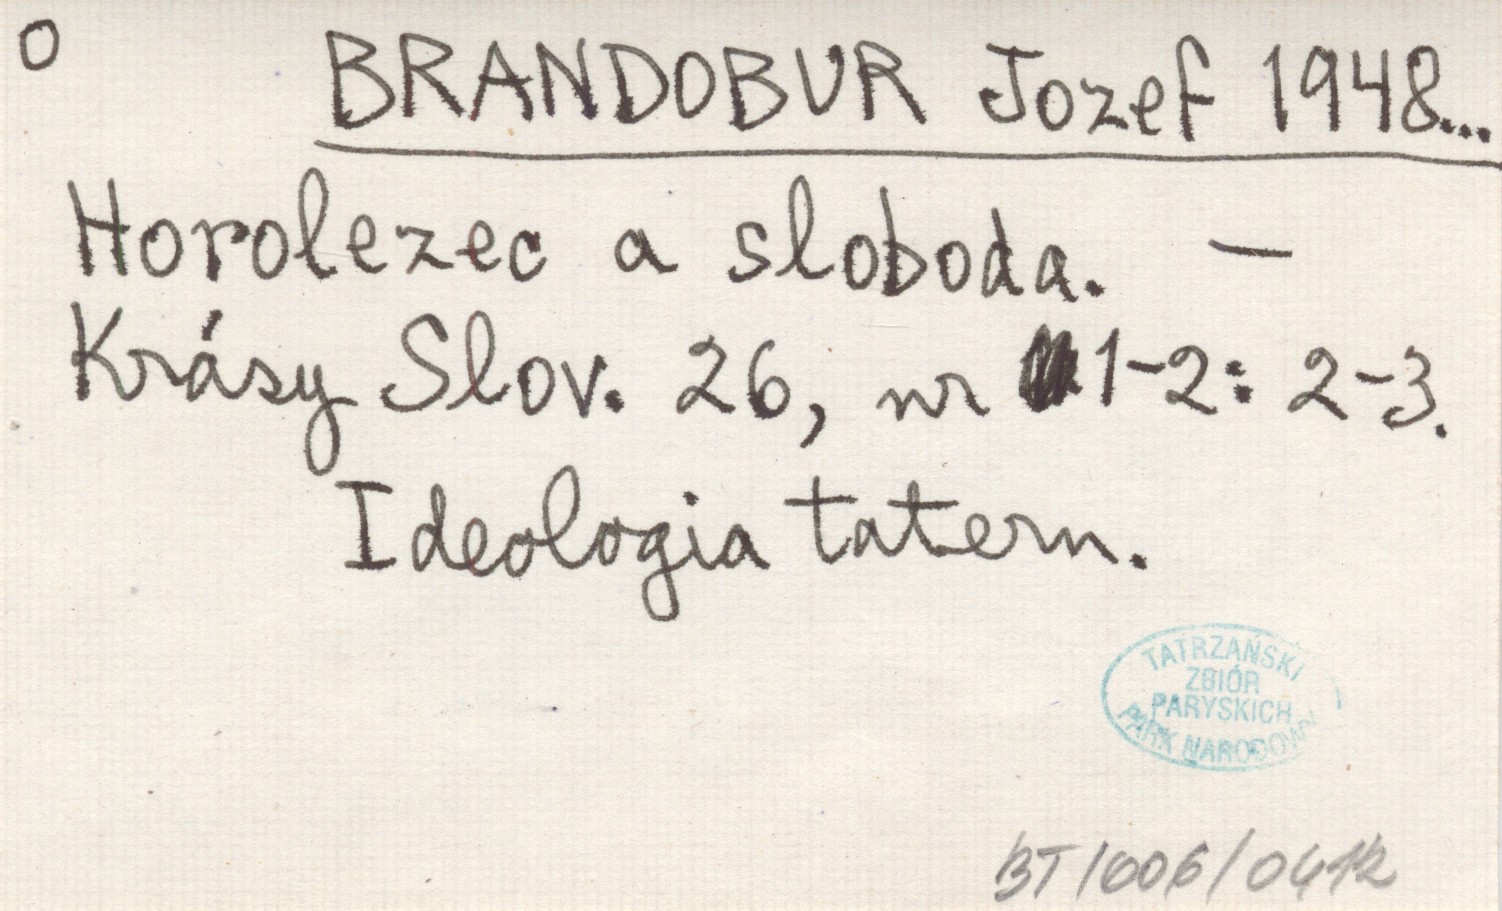 O
BRANDOBUR Jozef 1948...
Horolezec a sloboda. —
Krásy Slov. 26, nr 1-2: 2-3.
Ideologia tatern.
TATRZAŃSKI
ZBIÓR
PARYSKICH
PARK NARODOWY
BT/006/0412